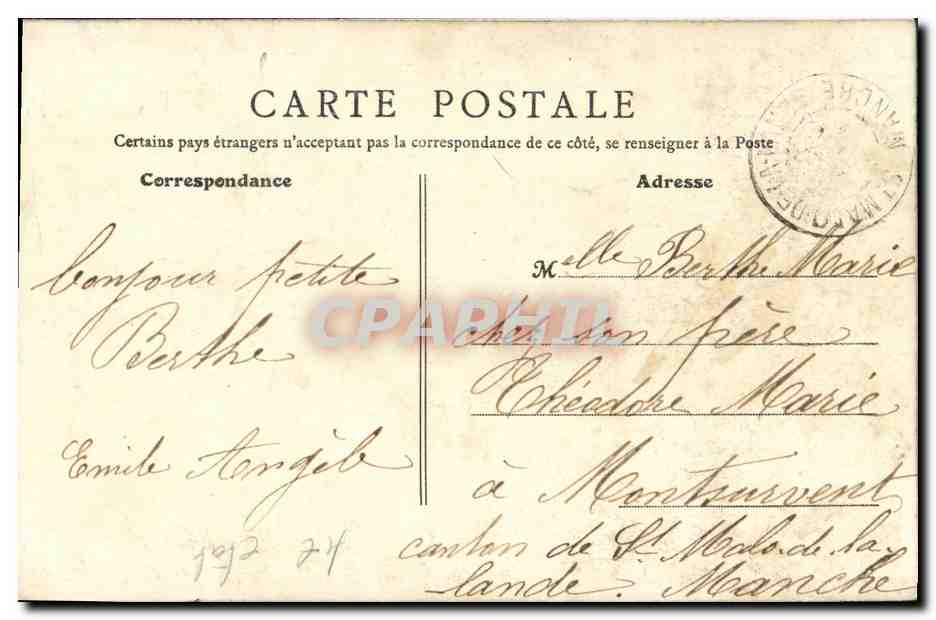 CARTE POSTALE
Certains pays étrangers n'acceptant pas la correspondance de ce côté, se renseigner à la Poste
Correspondance
bonjour petite
Berthe
Emile Angèle
Adresse
Melle Berthe Marie
chez son frère
Théodore Marie
à Montsurvent
canton de St Malo de la
lande. Manche
CPAPHIL
ST MALO-DE-LA
MANCHE